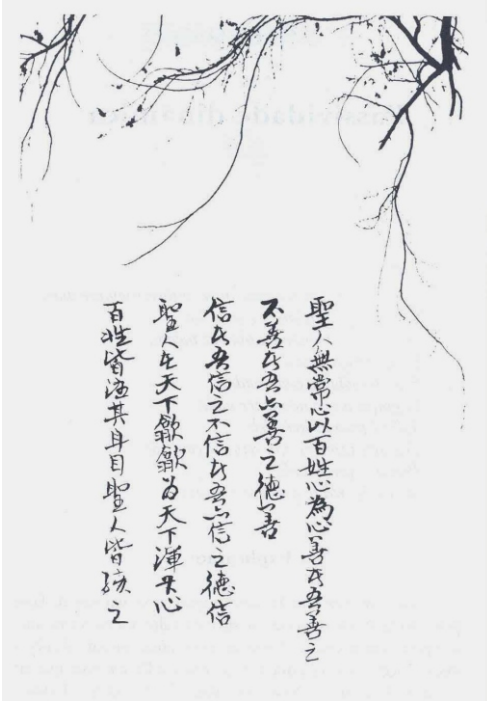 聖人無常心以百姓心為心善者吾善之
不善者吾亦善之德善
信者吾信之不信者吾亦信之德信
聖在天下歙歙為天下渾其心
百姓皆注其耳目聖人皆孩之